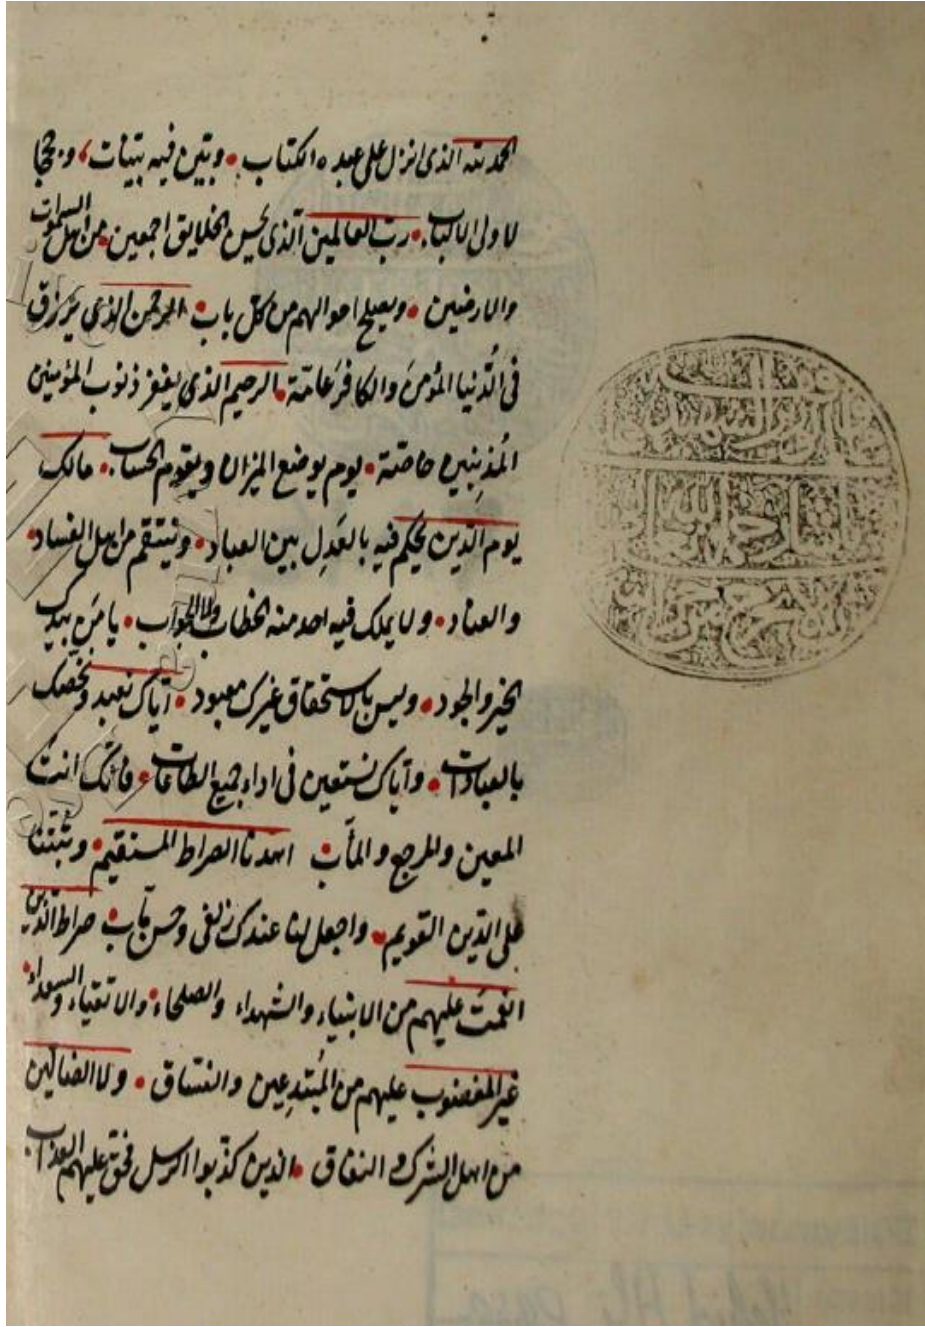 الحمد لله الذى انزل على عبده الكتاب وبين فيه بينات و حججا
لاولى الالباب رب العالمين الذى يحسن الخلايق اجمعين من اهل السموات
والارضين ويصلح احوالهم من كل باب الرحمن الذى يرزق
فى الدنيا المؤمن والكافر عامة الرحيم الذى يغفر ذنوب المؤمنين
المذنبين خاصة يوم يوضع الميزان ويقوم الحساب مالك
يوم الدين يحكم فيه بالعدل بين العباد وينتقم من اهل الفساد
والعناد ولا يملك فيه احد منه الخطاب ولا الجواب يا من بيدك
الخير والجود وليس بالاستحقاق غيرك معبود اياك نعبد ونخصك
بالعبادات واياك نستعين فى اداء جميع الطاعات فانك انت
المعين والمرجع والمآب اهدنا الصراط المستقيم وثبتنا
على الدين القويم واجعل لنا عندك زلفى وحسن مآب صراط الذين
انعمت عليهم من الانبياء والشهداء والصلحاء والاتقياء والسعداء
غير المغضوب عليهم من المبتدعين والفساق ولا الضالين
من اهل الشرك والنفاق الذين كذبوا الرسل فحق عليهم العذاب